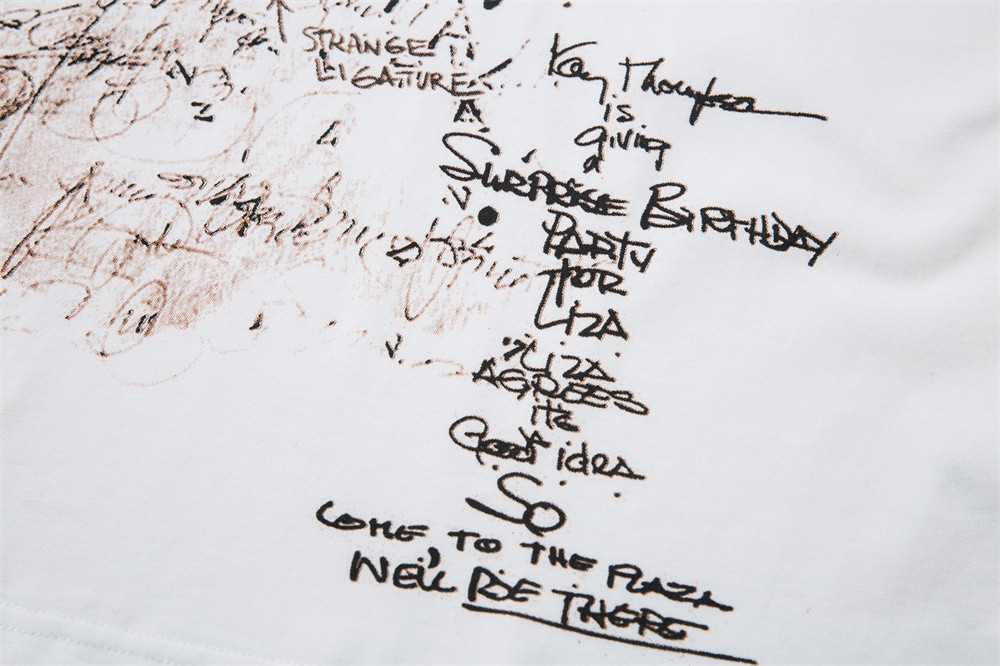 STRANGE
LIGATURE
Kay Thompson
is
giving
a
SURPRISE BIRTHDAY
PARTY
FOR
LIZA
LIZA
AGREES
it's
Good idea
So
COME TO THE PLAZA
WE'LL BE THERE